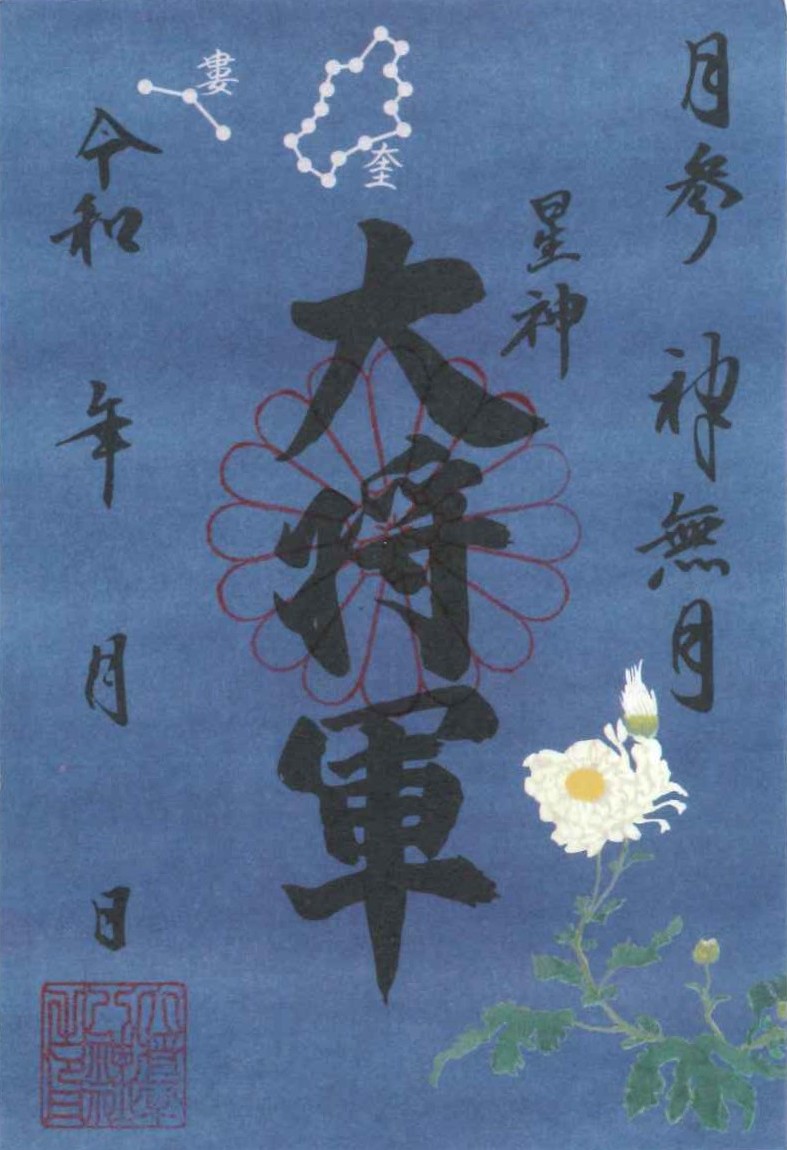 月参 神無月
星神
大将軍
奎
婁
令和 年 月 日